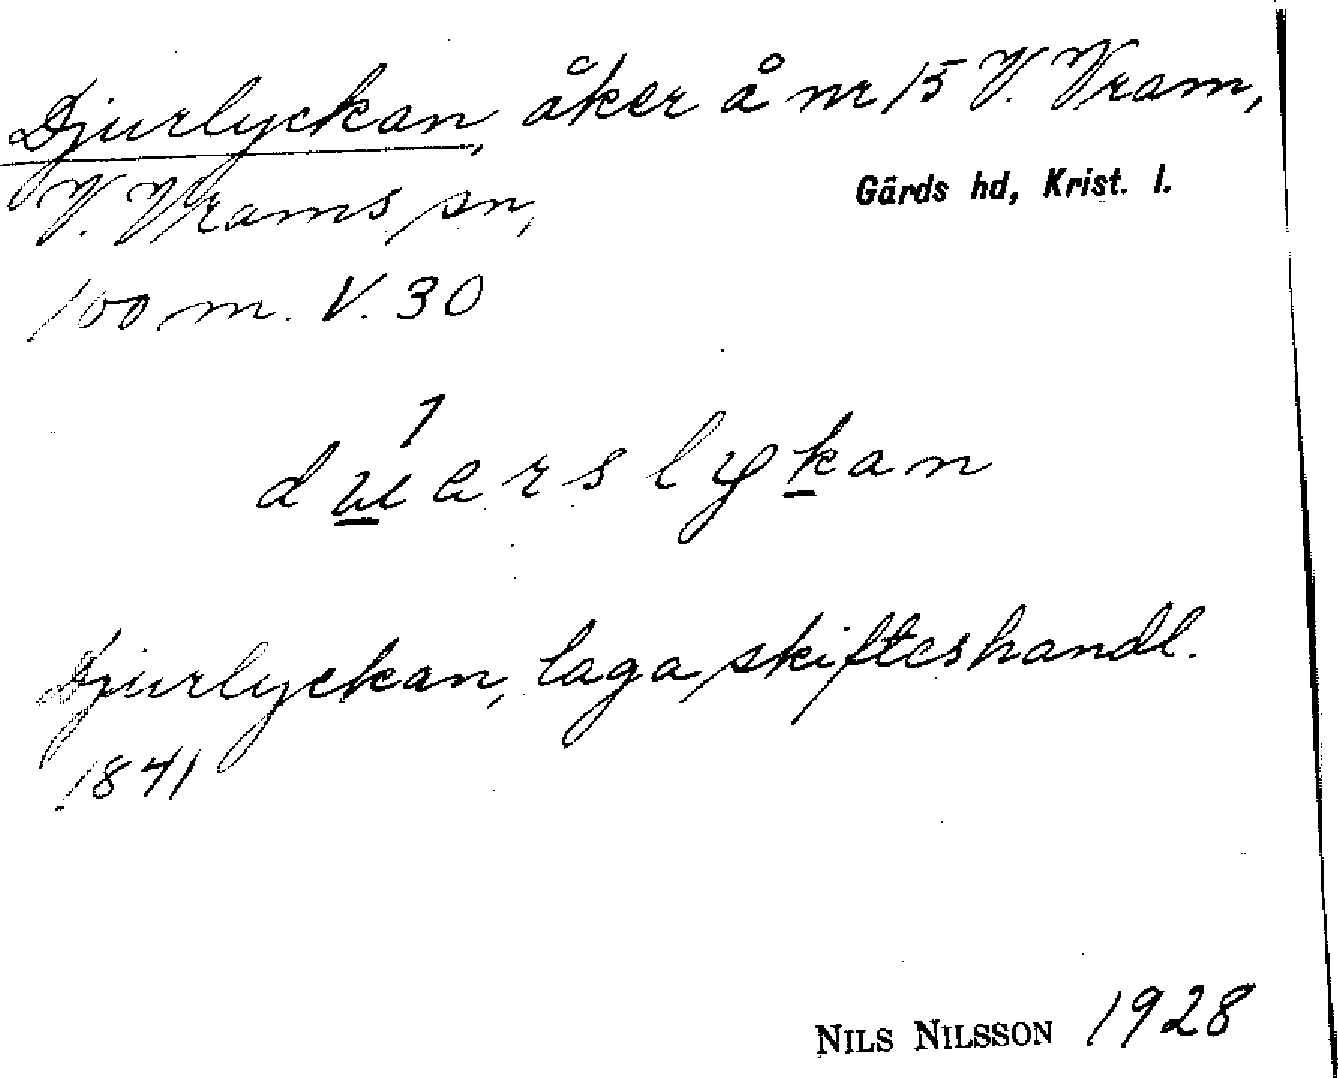 Djurlyckan, åker å nr 15 V. Vram,
V. Vrams sn,
Gärds hd, Krist. l.
100 m. V. 30
Djurlyckan, laga skifteshandl.
1841
NILS NILSSON 1928